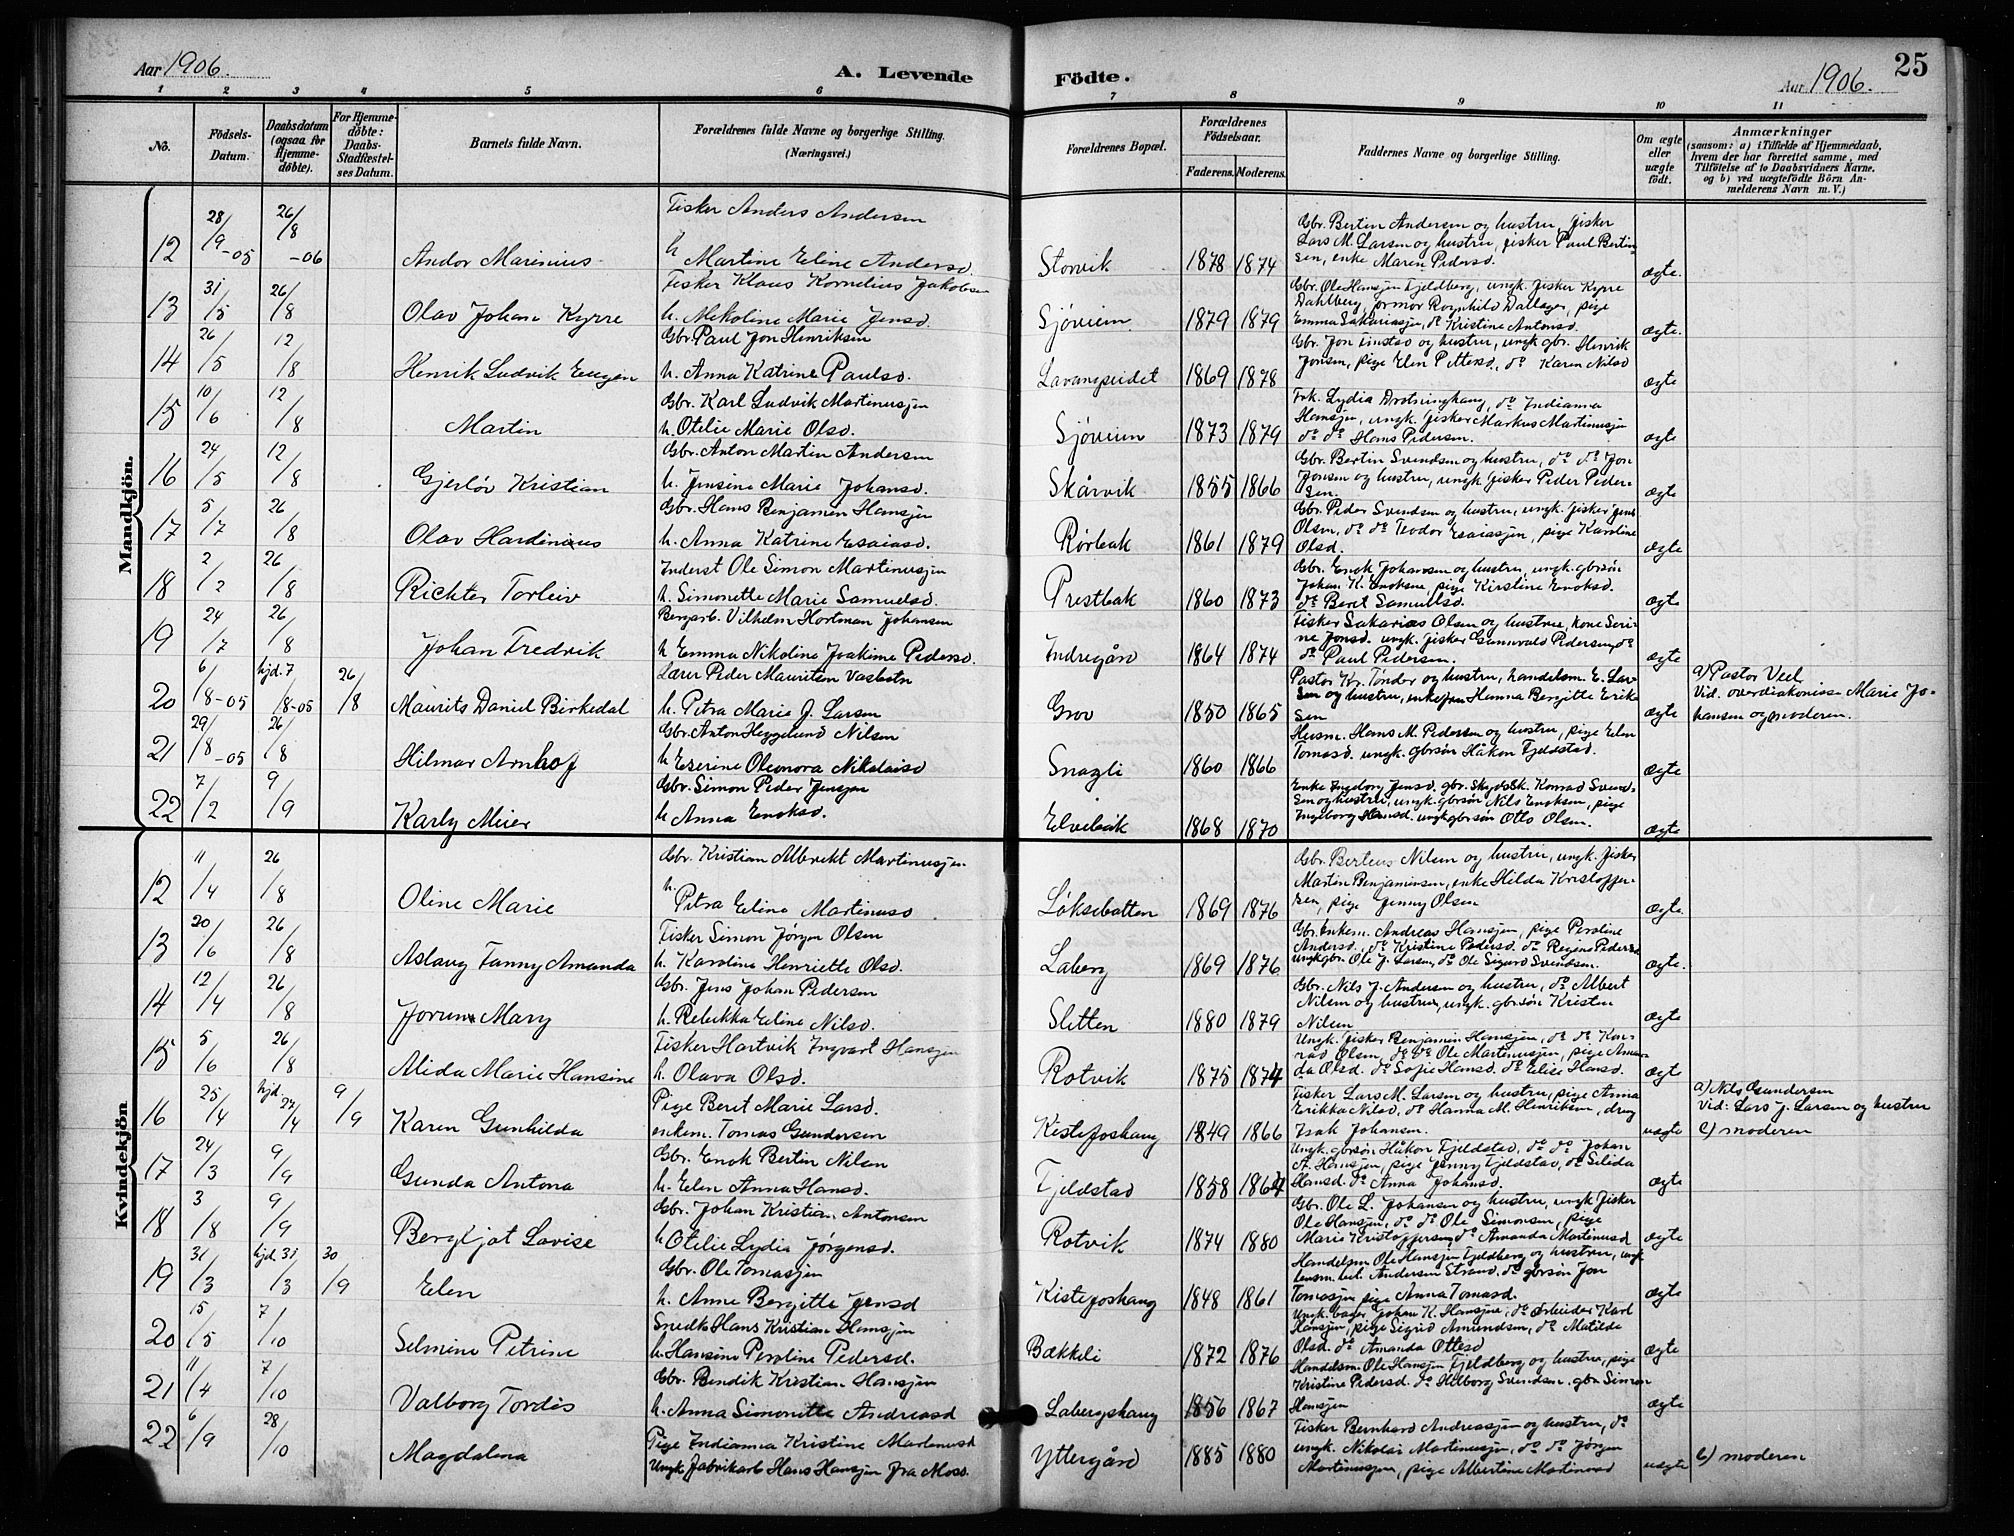 Aar 1906.
A. Levende
Födte.
Aar 1906.
25
1 2 3 4 5 6 7 8 9 10 11
No.
Födsels-Datum.
Daabsdatum (ogsaa for Hjemmedöbte).
For Hjemmedöbte: Daabs-Stadfæstelses Datum.
Barnets fulde Navn.
Forældrenes fulde Navne og borgerlige Stilling. (Næringsvei.)
Forældrenes Bopæl.
Forældrenes Födselsaar.
Faderens. Moderens.
Faddernes Navne og borgerlige Stilling.
Om ægte eller uægte født.
Anmærkninger
(saasom: a) i Tilfælde af Hjemmedaab, hvem der har forrettet samme, med Tilföielse af to Daabsvidners Navne. og b) ved uægtefödte Börn Anmelderens Navn m. V.)
Mandkjön.
12 28/9-05 26/8-06 Andor Marinius Fisker Anders Andersen
h. Martine Eline Andersd. Storvik 1878 1874 Gbr. Bertin Andersen og hustru, fisker
Lars M. Larsen og hustru, fisker Paul Bertin-
sen, enke Maren Pedersd. ægte.
13 31/5 26/8 Olav Johan Kyrre Fisker Klaus Kornelius Jakobsen
h. Nikoline Marie Jensd. Sjøveien 1879 1879 Gbr. Ole Hansjen Fjeldberg, ungk. fisker Kyrre
Dahlberg, jormor Ragnhild Dallager, pige
Emma Sakariasjen, do Kristine Antonsd. ægte.
14 26/5 12/8 Henrik Ludvik Eugen Gbr. Paul Jon Henriksen
h. Anna Katrine Paulsd. Lavangseidet 1869 1878 Gbr. Jon Finstad og hustru, ungk. gbr. Henrik
Jonsen, pige Elen Pettersd., do Karen Nilsd ægte
15 10/6 12/8 Martin Gbr. Karl Ludvik Martinusjen
h. Otelie Marie Olsd. Sjøveien 1873 1879 Frk. Lydia Drotninghaug, do Indianna
Hansjen, ungk. fisker Markus Martinusjen
do do Hans Pedersen. ægte
16 24/5 12/8 Gjerløv Kristian Gbr. Anton Martin Andersen
h. Jensine Marie Johansd. Skårvik 1855 1866 Gbr. Bertin Svendsen og hustru, do do Jon
Jonsen og hustru, ungk. fisker Peder Peder-
sen. ægte
17 5/7 26/8 Olav Hardinius Gbr. Hans Benjamin Hansjen
h. Anna Katrine Esaiasd. Rørbak 1861 1879 Gbr. Peder Svendsen og hustru, ungk. fisker Jens
Olsen, do do Teodor Esaiassjen, pige Karoline
Olsd. ægte
18 2/2 26/8 Richter Torleiv Inderst Ole Simon Martinusjen
h. Simonette Marie Samuelsd. Prestbak 1860 1873 Gbr. Enok Johansen og hustru, ungk. gbrsøn
Johan K. Enoksen, pige Kirstine Enoksd.
do Beret Samuelsd. ægte
19 24/7 26/8 Johan Fredrik Bergarb. Vilhelm Hartman Johansen
h Emma Nikoline Joakime Pedersd. Indregård 1864 1874 Fisker Sakarias Olsen og hustru, kone Seri-
ne Jonsd. ungk. fisker Gunnvald Pedersen, do
do Paul Pedersen. ægte
20 6/8-05 hjd. 7/8-05 26/8 Maurits Daniel Birkedal Lærer Peder Mauritsen Vasbotn
h. Petra Marie J. Larsen Grov 1850 1865 Pastor Kr. Tønder og hustru, handelsm. E. Lar-
sen og hustru, enkefru Hanna Bergitte Erik-
sen ægte a) Pastor Veel
Vid. overdiakonisse Marie Jo-
hansen og moderen.
21 29/8-05 26/8 Hilmar Arnhof Gbr. Anton Heggelund Nilsen
h Eserine Oleonora Nikolaisd Snagli 1860 1866 Husm. Hans M. Pedersen og hustru, pige Elen
Tomasd. ungk. gbrsøn Håkon Fjeldstad. ægte
22 7/2 9/9 Karly Meier Gbr. Simon Peder Jensjen
h Anna Enoksd. Elvebak 1868 1870 Enke Ingeborg Jensd. gbr. Skydssk. Konrad Svend-
sen og hustru, ungk. gbrsøn Nils Enoksen, pige
Ingeborg Hansd. ungk gbrsøn Otto Olsen. ægte
Kvindekjön
12 11/4 26/8 Oline Marie Gbr. Kristian Albrekt Martinusjen
h. Petra Eline Martinusd. Løksebotten 1869 1876 Gbr. Berteus Nilsen og hustru, ungk. fisker
Martin Benjaminsen, enke Hilda Kristoffer-
sen, pige Jenny Olsen ægte
13 20/6 26/8 Aslaug Fanny Amanda Fisker Simon Jørgen Olsen
h. Karoline Henriette Olsd. Laberg 1869 1876 Gbr. Enkem. Andreas Hansjen, pige Peroline
Andersd., do Kristine Pedersd. do Regine Pedersd
ungk gbr. Ole J. Larsen, do Ole Sigurd Svendsen. ægte.
14 12/4 26/8 Jorunn Mary Gbr. Jens Johan Pedersen
h. Rebekka Eline Nilsd. Sletten 1880 1879 Gbr. Nils J. Andersen og hustru, do Albert
Nilsen og hustru, ungk. gbrsøn Kristen
Nilsen ægte
15 5/6 26/8 Alida Marie Hansine Fisker Hartvik Ingvart Hansjen
h. Olava Olsd. Rotvik 1875 1874 Ungk. fisker Benjamin Hansjen, do do Kon-
rad Olsen, do do Ole Martinusjen, pige Aman-
da Olsd. do Sofie Hansd. do Elise Hansd. ægt
16 25/4 hjd. 27/4 9/9 Karen Gunhilda Pige Beret Marie Larsd.
enkem. Tomas Gundersen Kistefoshaug 1849 1866 Fisker Lars M. Larsen og hustru, pige Anna
Erikka Nilsd, do Hanna M. Henriksen, dreng
Isak Johansen. uægte a) Nils Gundersen
Vid: Lars J. Larsen og hustru
c) moderen
17 24/3 9/9 Gunda Antona Gbr. Enok Bertin Nilsen
h. Elen Anna Hansd. Fjeldstad 1858 1864 Ungk. gbrsøn Håkon Fjeldstad, do do Johan
A. Hansjen, pige Jenny Fjeldstad, do Selida
Hansd. do Anna Johansd. ægte
18 3/8 9/9 Bergljot Lovise Gbr. Johan Kristian Antonsen
h. Otelie Lydia Jørgensd. Rotvik 1874 1880 Gbr. Ole L. Johansen og hustru, ungk fisker
Ole Hansjen, do do Ole Simonsen, pige
Marie Kristoffersen, do Amanda Martinusd ægte
19 31/3 hjd. 31/3 30/9 Elen Gbr. Ole Tomasjen
h. Anne Bergitte Jensd Kistefoshaug 1848 1861 Handelsm Ole Hansjen Fjeldberg og hustru, ungk
lensm. bet. Andersen Strand. do gbrsøn Jon
Tomasjen pige Anna Tomasd. ægte
20 15/5 7/10 Selmine Petrine Snedk Hans Kristian Hansjen
h. Hansine Peroline Pedersd. Bækkeli 1872 1876 Ungk. bager Johan K. Hansjen, do Arbeider Karl
Hansjen, pige Sigrid Amundsen, do Matilde
Olsd. do Amanda Ottesd ægte
21 11/4 7/10 Valborg Tordis Gbr. Bendik Kristian Hansjen
h. Anna Simonette Andreasd Labergshaug 1856 1867 Handelsm. Ole Hansjen Fjeldberg og hustru, pige
Kristine Pedersd. do Hilborg Svendsen. gbr. Simon
Hansjen ægte
22 6/9 28/10 Magdalena Pige Indianna Kristine Martinusd
Ungk fabrikarb Hans Hansjen fra Moss. Yttergård 1885 1880 Fisker Bernhard Andreassjen og hustru, do
ungk. Nikolai Martinusjen, do do Jørgen
Martinusjen, pige Albertine Martinusd uægte b) moderen